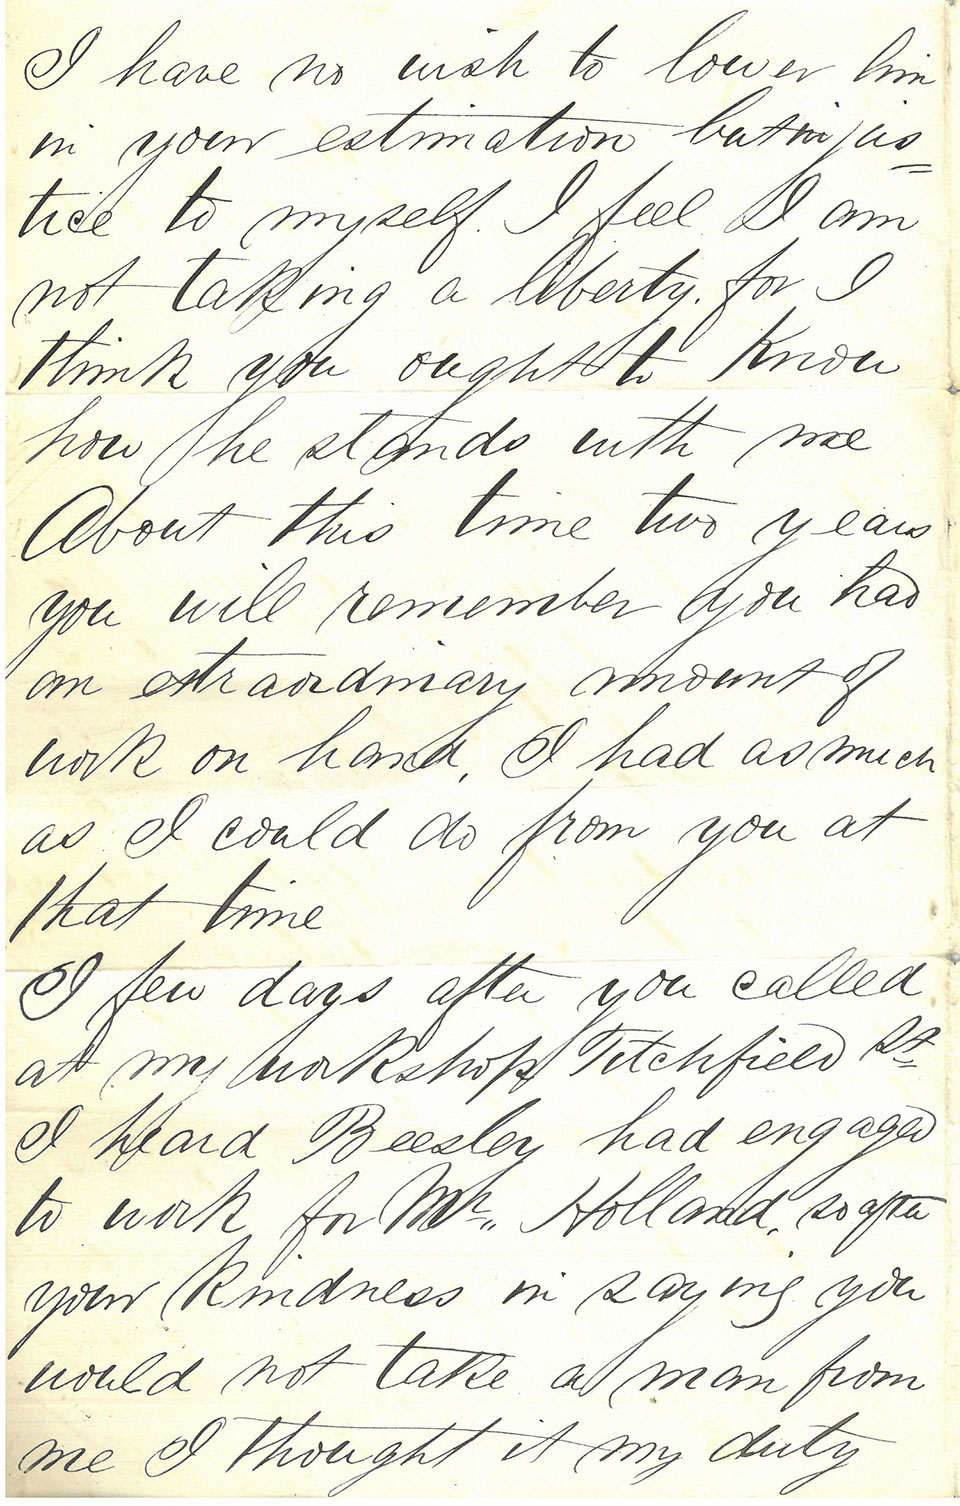 I have no wish to lower him
in your estimation but in jus=
tice to myself. I feel I am
not taking a liberty. for I
think you ought to know
how he stands with me
About this time two years
you will remember you had
an extraordinary amount of
work on hand, I had as much
as I could do from you at
that time
I few days after you called
at my workshop Titchfield St
I heard Beesley had engaged
to work for Mr. Holland, so after
your kindness in saying you
would not take a man from
me I thought it my duty